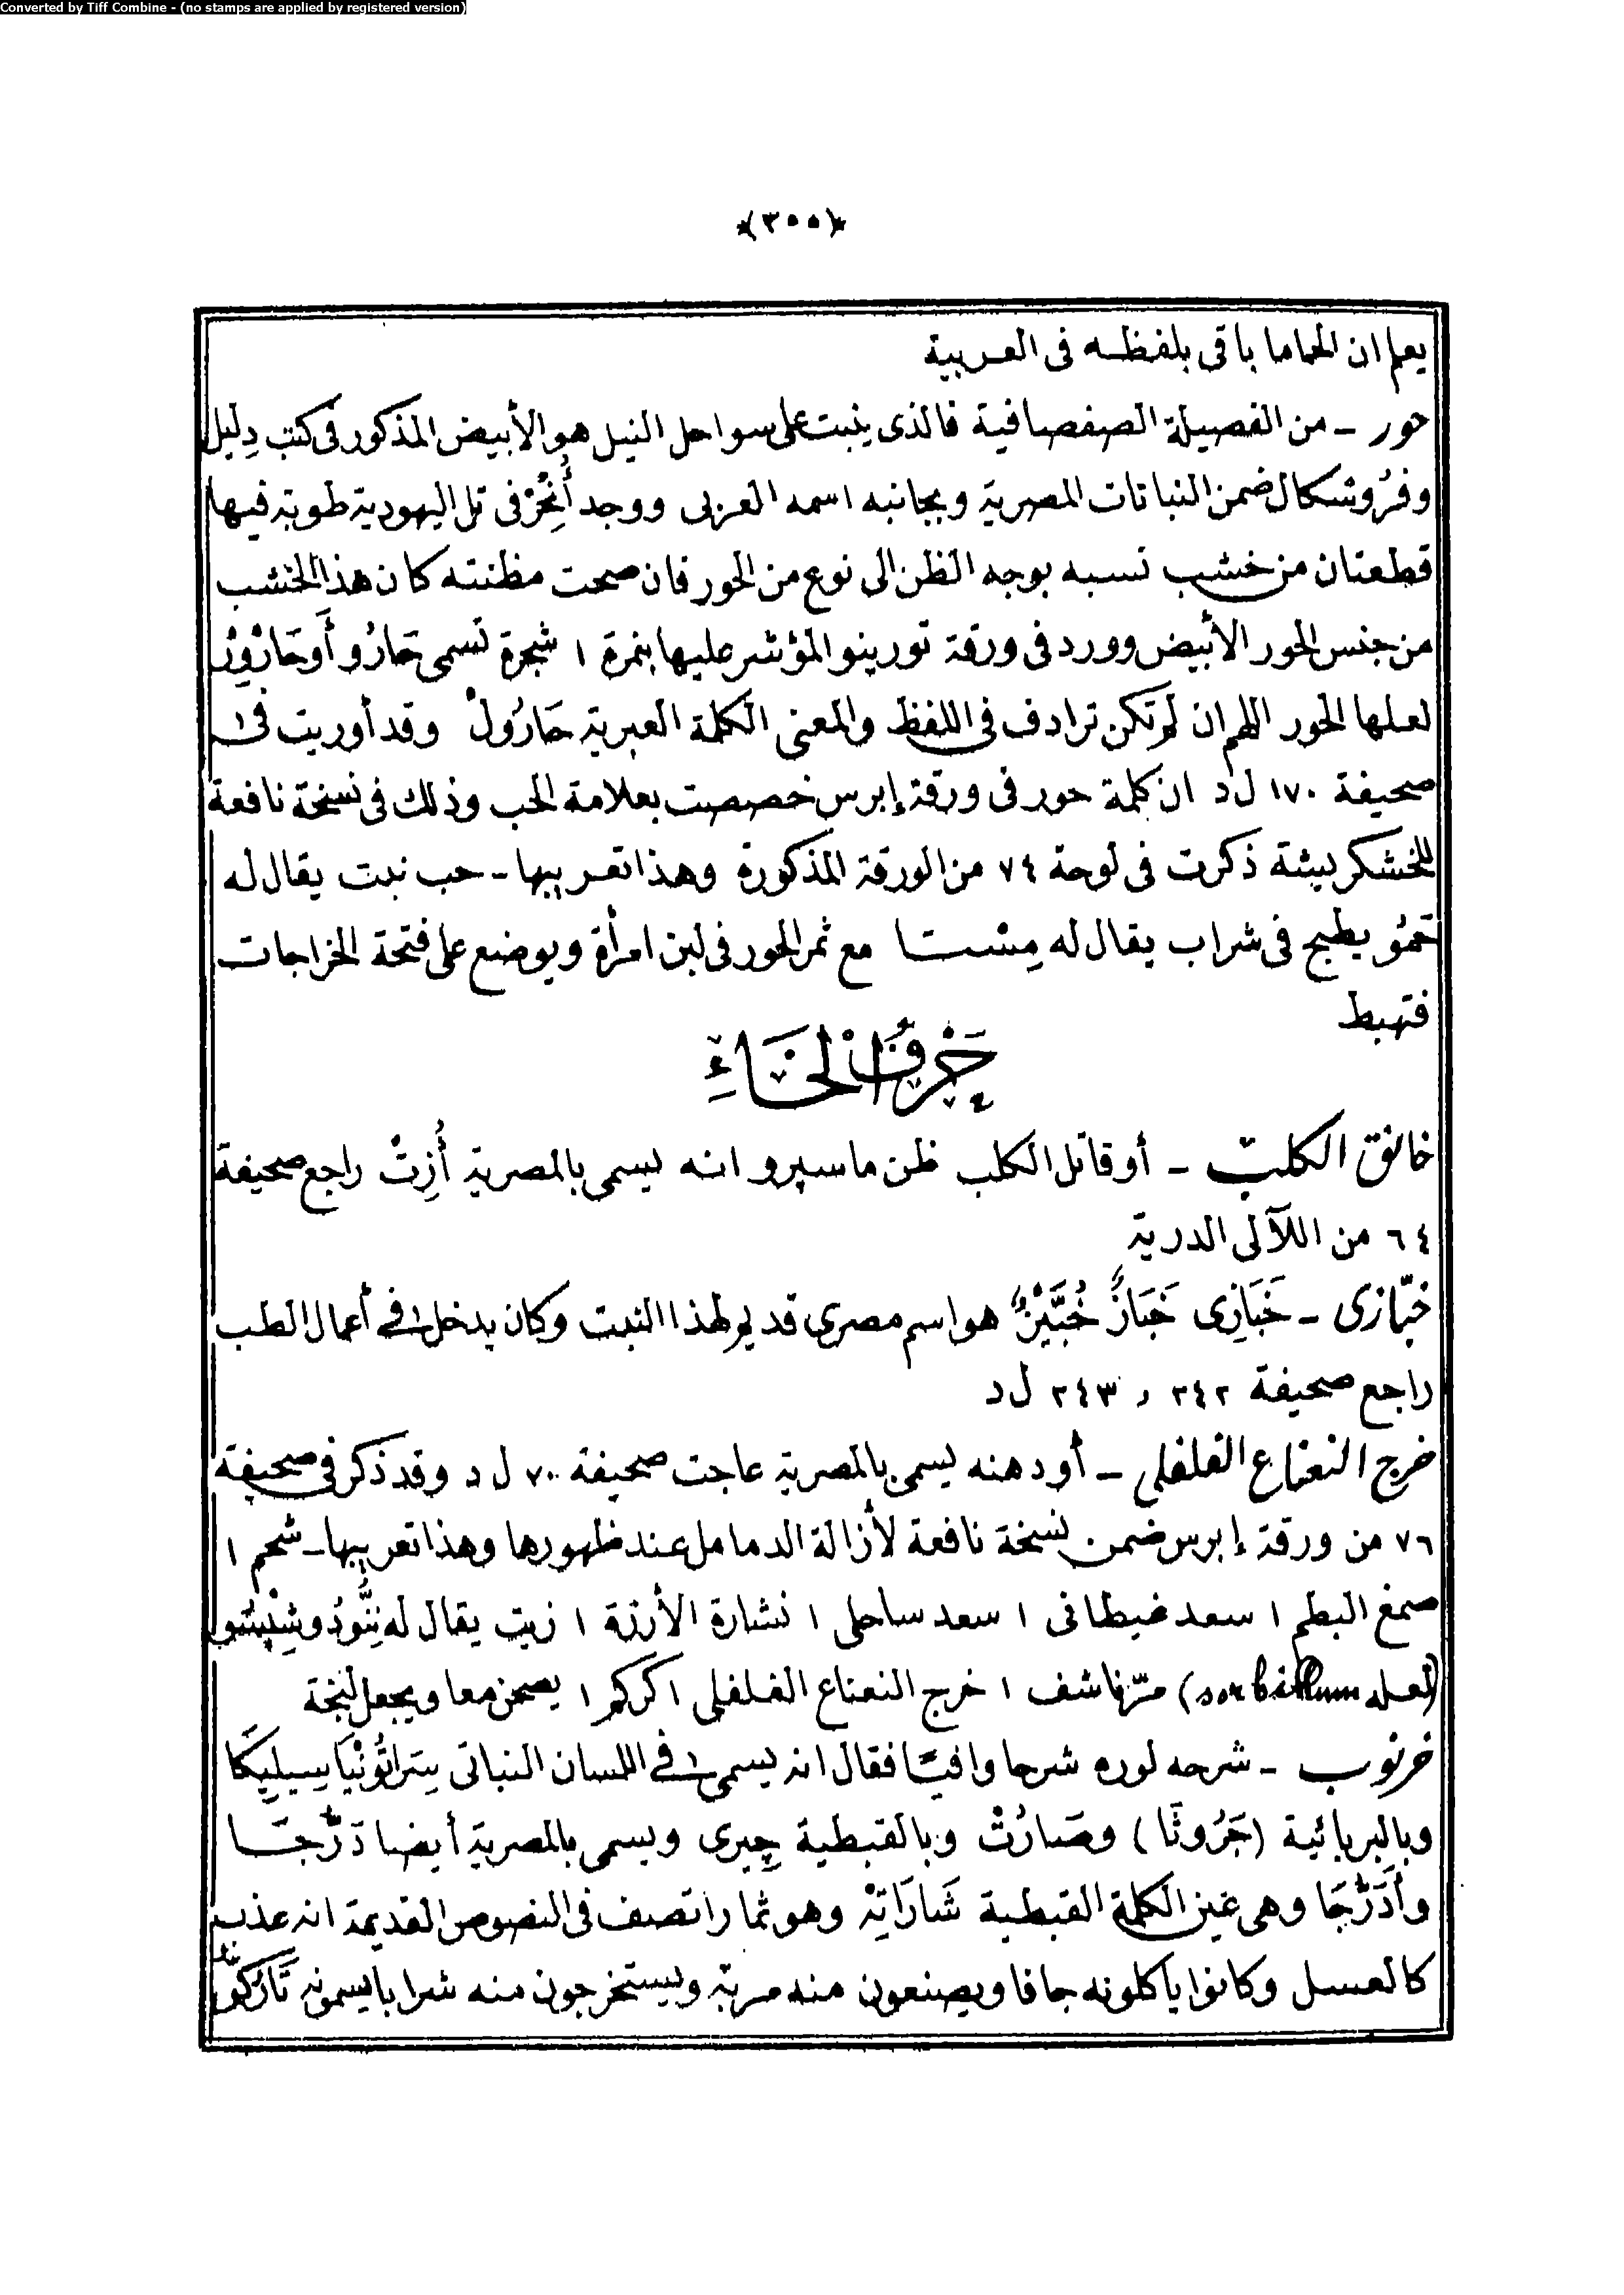 Converted by Tiff Combine - (no stamps are applied by registered version)
﴿٣٥٥﴾
يعلم ان الحماما باقى بلفظه فى العربية
حور – من الفصيلة الصفصافية فالذى ينبت على سواحل النيل هو الأبيض المذكور فى كتب دِليل
وفرُوسكال ضمن النباتات المصرية وبجانبه اسمه العربى ووجد أُنْجُرْ فى تل اليهودية طوبة فيها
قطعتان من خشب نسبه بوجه الظن الى نوع من الحور فان صحت مظنته كان هذا الخشب
من جنس الحور الأبيض وورد فى ورقة تورينو المؤشر عليها بنمرة ١ شجرة تسمى حَارُو أَوحَارْوُرْ
لعلها الحور اللهم ان لم تكن ترادف فى اللفظ والمعنى الكلمة العبرية حَارُولْ وقد أوريت فى
صحيفة ١٧٠ ل د ان كلمة حور فى ورقة إبرس خصصت بعلامة الحب وذلك فى نسخة نافعة
للخشكريشة ذكرت فى لوحة ٧٤ من الورقة المذكورة وهذا تعريبها – حب نبت يقال له
حَمُو يطبخ فى شراب يقال له مِسْتا مع ثمر الحور فى لبن امرأة ويوضع على فتحة الخراجات
فتهبط
حَرْفُ الْخَاءِ
خانق الكلب – أو قاتل الكلب ظن ماسپرو انه يسمى بالمصرية أُزِتْ راجع صحيفة
٦٤ من اللآلى الدرية
خبّازى – خَبَازِى خَبَازٌ خُبَّيْزٌ هو اسم مصرى قديم لهذا النبت وكان يدخل فى أعمال الطب
راجع صحيفة ٢٤٢ و ٢٤٣ ل د
خرج النعناع الفلفلى – أو دهنه يسمى بالمصرية عاجت صحيفة ٧٠ ل د وقد ذكر فى صحيفة
٧٦ من ورقة إبرس ضمن نسخة نافعة لأزالة الدمامل عند ظهورها وهذا تعريبها – شحم ١
صمغ البطم ١ سعد غيطانى ١ سعد ساحلى ١ نشارة الأرزة ١ زيت يقال له
(لعله) مرّ ناشف ١ خرج النعناع الفلفلى ١ كركم ١ يصحن معا ويجعل لبخة
خرنوب – شرحه لوره شرحا وافيًا فقال انه يسمى فى اللسان النباتى سِرَاتُونْيَا سِيلِيكَا
وبالبربائية (جَرُوتَا) وصَارُتْ وبالقبطية چِيرى ويسمى بالمصرية أيضا دَرُّجَا
وأَدَرُّجَا وهى عين الكلمة القبطية شَارَاتِهْ وهو ثما راتصف فى النصوص القديمة انه عذب
كالعسل وكانوا يأكلونه جافا ويصنعون منه مربة ويستخرجون منه شرابا يسمونه